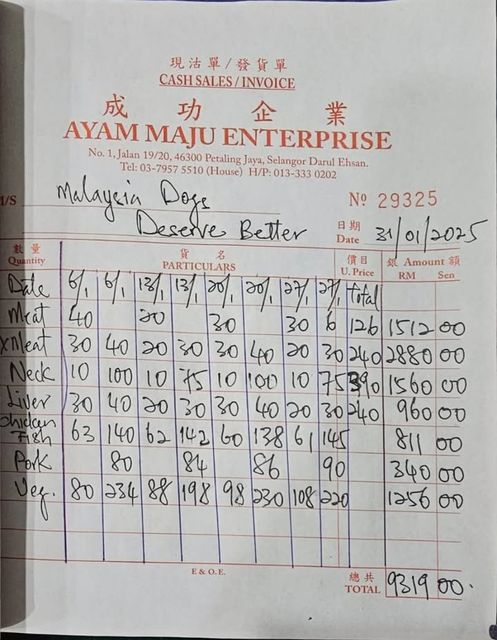 現沽單/發貨單
CASH SALES / INVOICE
成功企業
AYAM MAJU ENTERPRISE
No. 1, Jalan 19/20, 46300 Petaling Jaya, Selangor Darul Ehsan.
Tel: 03-7957 5510 (House) H/P: 013-333 0202
M/S Malaysia Dogs Deserve Better
No 29325
日期 Date 31/01/2025
數量 Quantity 貨名 PARTICULARS 價目 U. Price 銀 Amount 額 RM Sen
Date 6/1 6/1 13/1 13/1 20/1 20/1 27/1 27/1 Total
Meat 40 20 30 30 6 126 1512 00
xMeat 30 40 20 30 30 40 20 30 240 2880 00
Neck 10 100 10 75 10 100 10 75 390 1560 00
Liver 30 40 20 30 30 40 20 30 240 960 00
Chicken
Fish 63 140 62 142 60 138 61 145 811 00
Pork 80 84 86 90 340 00
Veg. 80 234 88 198 98 230 108 220 1256 00
E & O.E.
總共 TOTAL 9319 00